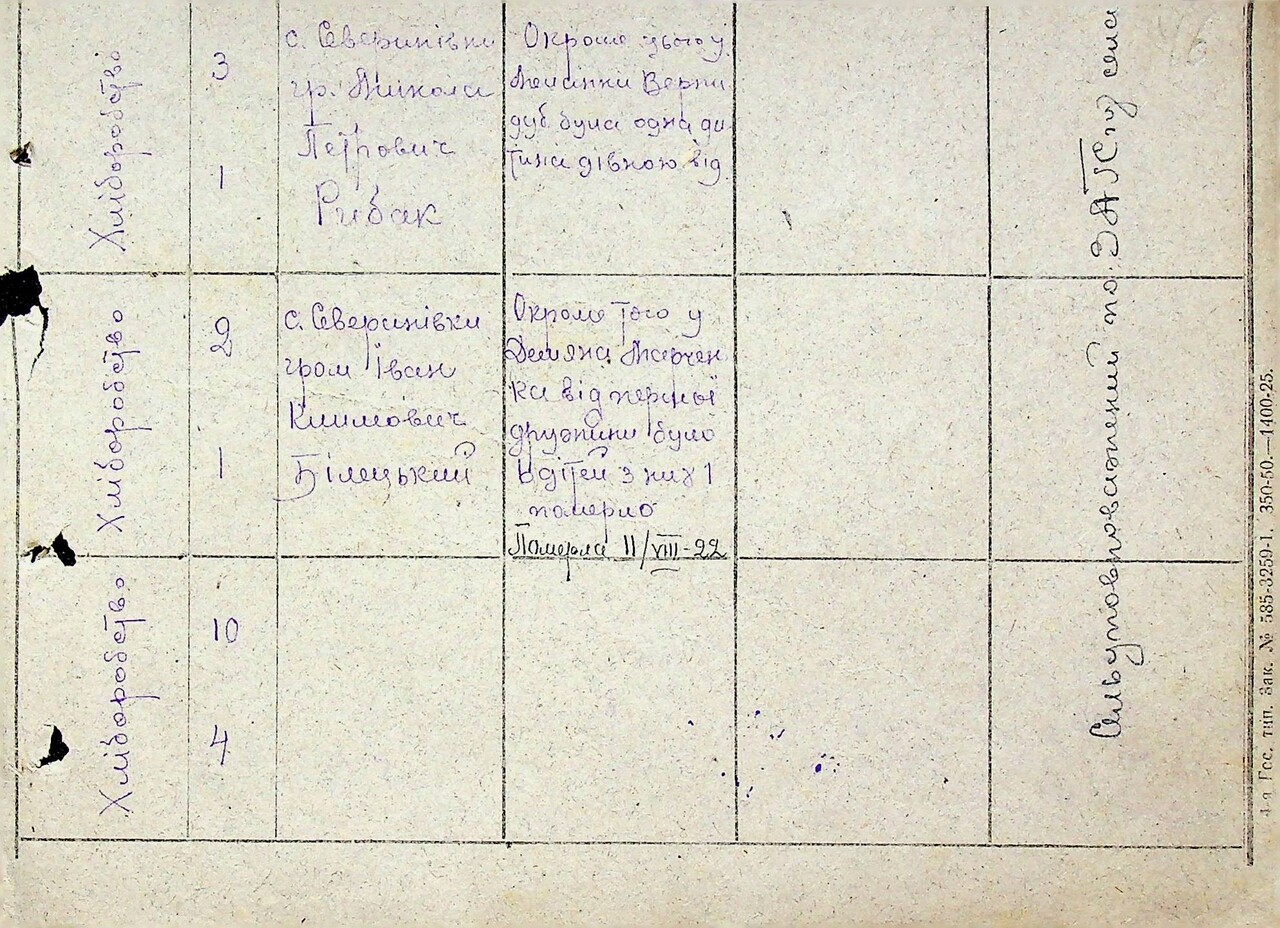 Хліборобство
3
1
с. Северинівки
гр. Микола
Петрович
Рибак
Окроме цього у
була одна ди
тина дівною від
Хліборобство
2
1
с. Северинівки
гром Іван
Климович
Білецький
Окроме того у
Демяна Марчен
ка від першої
дружини було
6 дітей з них 1
померло
Померла 11/VIII-22
Хліборобство
10
4
Сільуповноважений по ЗАГСіу села
46
4-а Гос. тип. Зак. № 585-3259-1. 350-50.—1400-25.